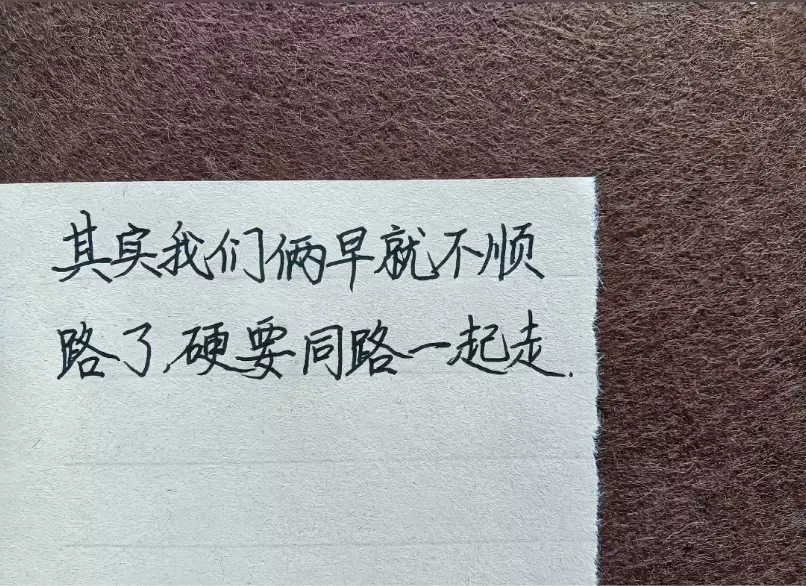 其实我们俩早就不顺
路了,硬要同路一起走.